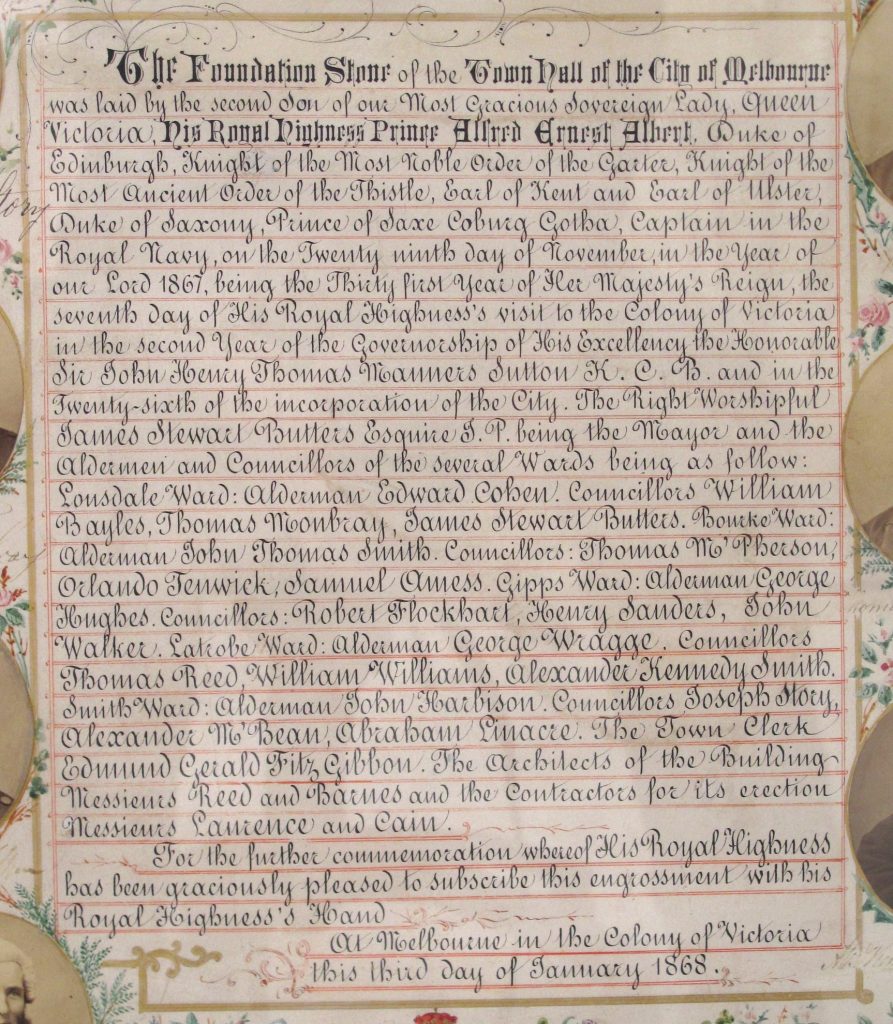 The Foundation Stone of the Town Hall of the City of Melbourne
was laid by the second Son of our Most Gracious Sovereign Lady, Queen
Victoria, His Royal Highness Prince Alfred Ernest Albert, Duke of
Edinburgh, Knight of the Most Noble Order of the Garter, Knight of the
Most Ancient Order of the Thistle, Earl of Kent and Earl of Ulster,
Duke of Saxony, Prince of Saxe Coburg Gotha, Captain in the
Royal Navy, on the Twenty ninth day of November, in the Year of
our Lord 1867, being the Thirty first Year of Her Majesty's Reign, the
seventh day of His Royal Highness's visit to the Colony of Victoria
in the second Year of the Governorship of His Excellency the Honorable
Sir John Henry Thomas Manners Sutton K. C. B. and in the
Twenty-sixth of the incorporation of the City. The Right Worshipful
James Stewart Butters Esquire J. P. being the Mayor and the
Aldermen and Councillors of the several Wards being as follow:
Lonsdale Ward: Alderman Edward Cohen. Councillors William
Bayles, Thomas Monbray, James Stewart Butters. Bourke Ward:
Alderman John Thomas Smith. Councillors: Thomas McPherson,
Orlando Fenwick, Samuel Amess. Gipps Ward: Alderman George
Hughes. Councillors: Robert Flockhart, Henry Sanders, John
Walker. Latrobe Ward: Alderman George Wragge. Councillors
Thomas Reed, William Williams, Alexander Kennedy Smith.
Smith Ward: Alderman John Harbison. Councillors Joseph Story,
Alexander McBean, Abraham Linacre. The Town Clerk
Edmund Gerald Fitz Gibbon. The Architects of the Building
Messieurs Reed and Barnes and the Contractors for its erection
Messieurs Laurence and Cain.
For the further commemoration whereof His Royal Highness
has been graciously pleased to subscribe this engrossment with his
Royal Highness's Hand
At Melbourne in the Colony of Victoria
this third day of January 1868.
Story